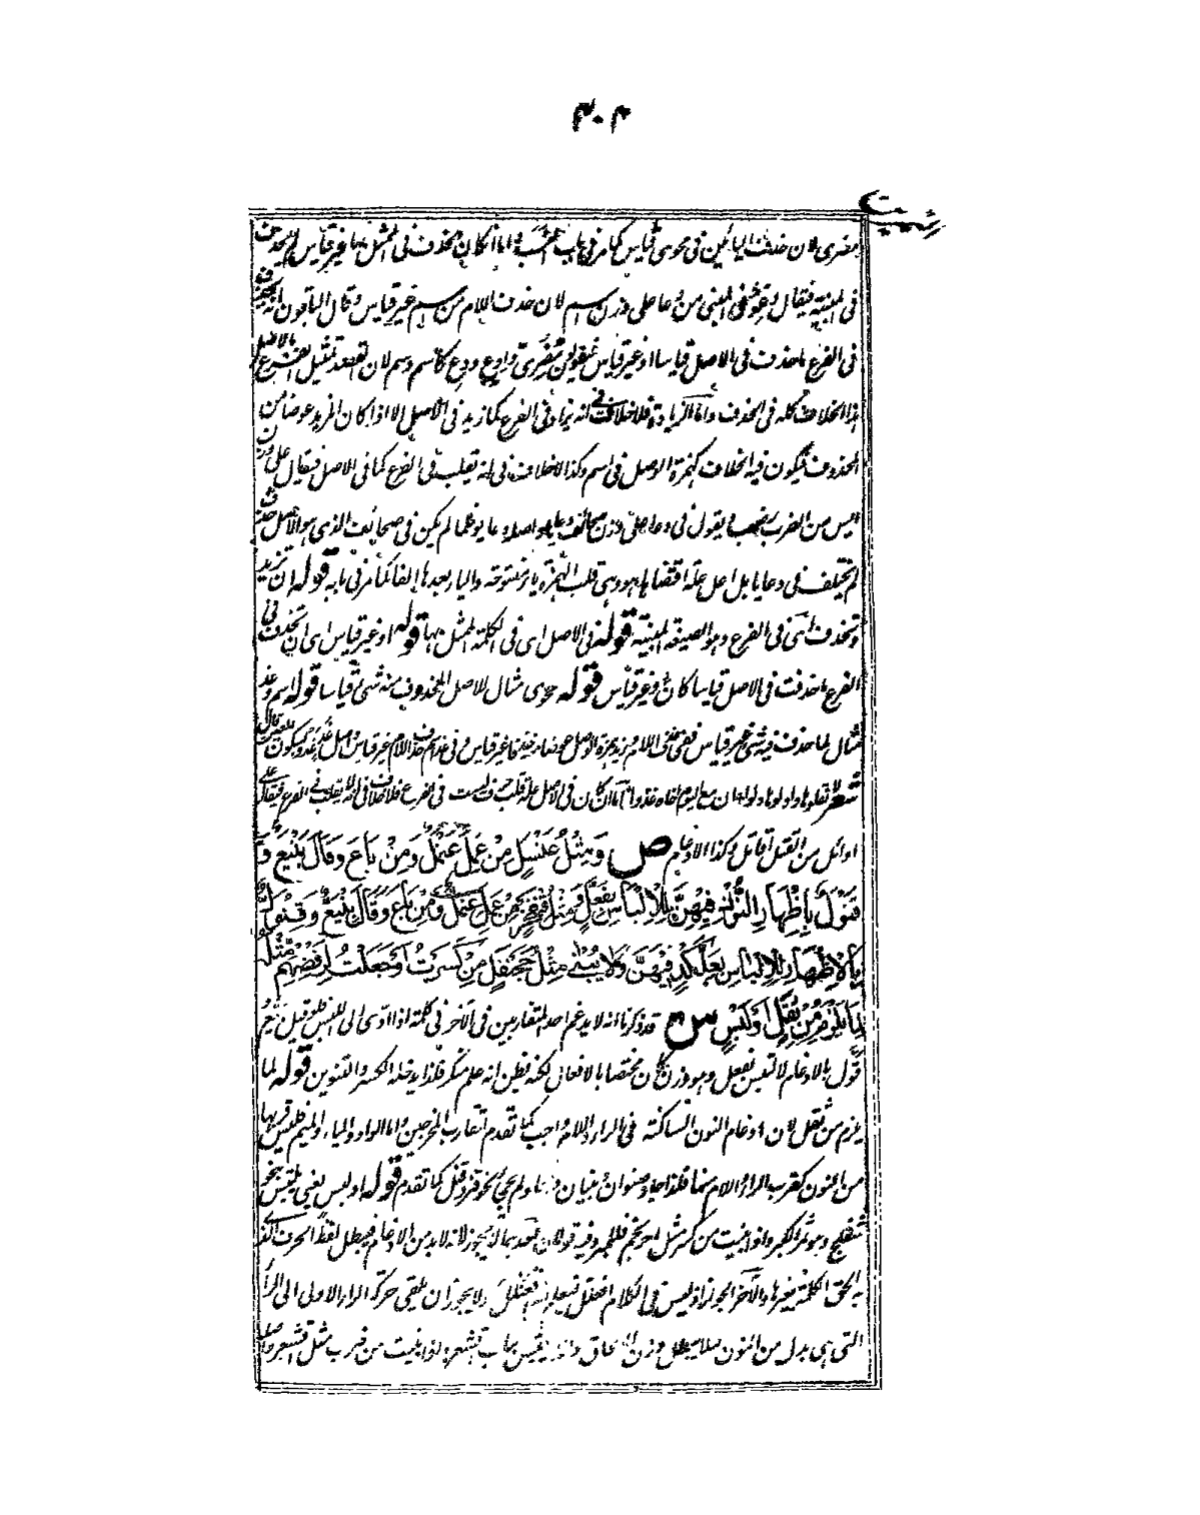 ٣٠٢
مضرى لان حذف اليائين فى محوى قياس كما مر فى باب النسب واما ان كان الحذف فى الممثل بها غير قياس لم يحذف
فى المبنية فيقال دعو فى المبنى من دعا على وزن اسم لان حذف اللام من اسم غير قياس وقال الباقون انه يحذف
فى الفرع ما حذف فى الاصل قياسا او غير قياس فيقولون مضرى وادع ودع كاسم وسم لان القصد تمثيل الفرع بالاصل
هذا الخلاف كله فى الحذف واما الزيادة فلا خلاف فى انه يزاد فى الفرع كما زيد فى الاصل الا اذا كان المزيد عوضا من
المحذوف فيكون فيه الخلاف كهمزة الوصل فى اسم وكذا لا خلاف فى انه تقلب فى الفرع كما فى الاصل فيقال على وزن
ايس من الضرب رضب ويقول فى دعا على وزن صحائف دعايا واصله دعايو فلما لم يكن فى صحائف الذى هو الاصل حذف
لم تختلف فى دعايا بل اعل علة اقتضاها هو وهى قلب الهمزة ياء مفتوحة والياء بعدها الفا كما مر فى بابه قوله ان تزيد
وتحذف اى فى الفرع وهو الصيغة المبنية قوله فى الاصل اى فى الكلمة الممثل بها قوله او غير قياس اى ان تحذف فى
الفرع ما حذفت فى الاصل قياسا كان او غير قياس قوله محوى مثال للاصل المحذوف منه شئ قياسا قوله اسم وغد
مثال لما حذف فيه شئ غير قياس ففى اسم حذف اللام وزيد همزة الوصل عوضا وفى غد حذف اللام غير قياس واصل غد غدو بسكون الدال قال
شعر لا تقلواها وادلواها دلوا ان مع اليوم اخاه غدوا اما ان كان فى الاصل علة قلب حرف ليست فى الفرع فلا خلاف فى انه لا يقلب فى الفرع فيقال على
اوائل من القتل اقاتل وكذا الادغام ص وَمِثْلُ عَنْسَلٍ مِنْ عَمِلَ عَنْمَلٌ وَمِنْ بَاعَ وَقَالَ بَنْيَعٌ وَ
قَنْوَلٌ بِإِظْهَارِ النُّوْنِ فِيْهِنَّ لِلْاِلْبَاسِ بِفَعَّلٍ وَمِثْلُ قِنَّفْخَرٍ مِنْ عَمِلَ عِنَّمْلٌ وَمِنْ بَاعَ وَقَالَ بِنْيَعٌّ وَقِنْوَلٌّ
بِالْاِظْهَارِ لِلْاِلْبَاسِ بِعِلَّكْدٍ فِيْهِنَّ وَلَا يُبْنٰى مِثْلُ جَحَنْفَلٍ مِنْ كَسَرْتُ اَوْ جَعَلْتُ لِرَفْضِهِمْ مِثْلَهُ
لِمَا يَلْزَمُ مِنْ ثِقَلٍ اَوْ لَبْسٍ ش قد ذكرنا انه لا يدغم احد المتقاربين فى الآخر فى كلمة اذا ادى الى اللبس فلو قيل بيّع
قوّل بالادغام لالتبس بفعل وهو وزن وان كان مختصا بالافعال لكنه يظن انه علم منكر فلذا يدخله الكسر والتنوين قوله لما
يلزم من ثقل لان ادغام النون الساكنة فى الراء واللام واجب كما تقدم لتقارب المخرجين واما الواو والياء والميم فليس قربها
من النون كقرب الراء واللام منها فلذا جاء صنوان وبنيان ولم يجئ نحو قنر وقنل كما تقدم قوله او لبس يعنى يلتبس بنحو
شفلح وهو ثمر الكبر واذا بنيت من كسر مثل احرنجم فللمبرد فيه قولان احدهما لا يجوز لانه لابد من الادغام فيبطل لفظ الحرف الذى
به الحق الكلمة بغيرها والآخر الجواز اذ ليس فى الكلام افعلل فيعلم انه افعنلل ولا يجوز ان يلقى حركة الراء الاولى الى الراء
التى هى بدل من النون لئلا يبطل وزن الالحاق واذا بنيت من ضرب مثل اقشعر واصل